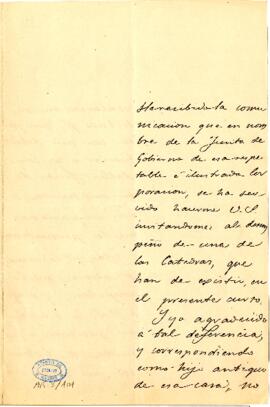 He recibido la comu
nicacion que en nom
bre de la Junta de
Gobierno de esa respe
table é ilustrada Cor
poracion, se ha ser
vido hacerme V.S
invitandome al desem
peño de una de
las Catedras, que
han de existir, en
el presente curso.
Y yo agradecido
a tal deferencia,
y correspondiendo
como hijo antiguo
de esa casa, no